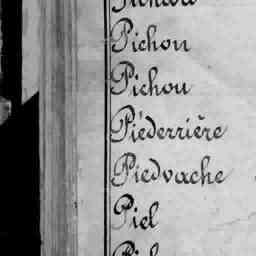 Pichon
Pichou
Piéderrière
Piedvache
Piel